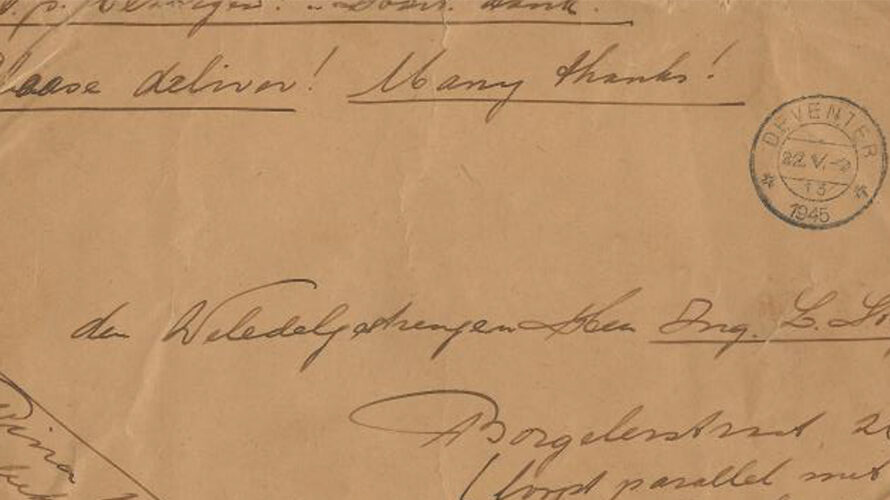 bezorgen! Dank.
Please deliver! Many thanks!
DEVENTER
22.V.
13
1945
den Weledelgestrengen Heer Ing. L.
Borgelerstraat, 2
(loopt parallel met